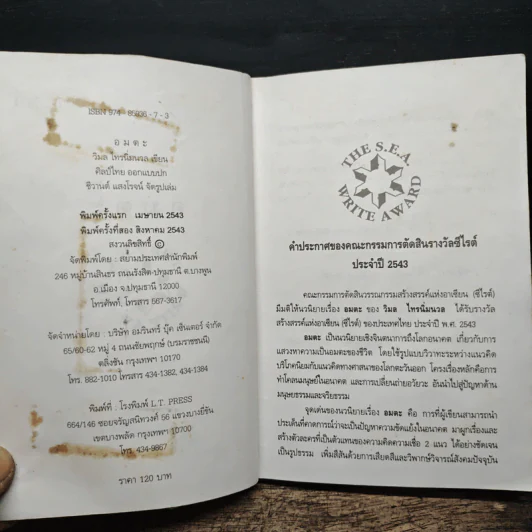 ISBN 974 - 85936 - 7 - 3
อ ม ต ะ
วิมล ไทรนิ่มนวล เขียน
ศิลป์ไทย ออกแบบปก
ชีวานต์ แสงโรจน์ จัดรูปเล่ม
พิมพ์ครั้งแรก เมษายน 2543
พิมพ์ครั้งที่สอง สิงหาคม 2543
สงวนลิขสิทธิ์ ©
จัดพิมพ์โดย : สยามประเทศสำนักพิมพ์
246 หมู่บ้านสินธร ถนนรังสิต-ปทุมธานี ต.บางพูน
อ.เมือง จ.ปทุมธานี 12000
โทรศัพท์, โทรสาร 567-3617
จัดจำหน่ายโดย : บริษัท อมรินทร์ บุ๊ค เซ็นเตอร์ จำกัด
65/60-62 หมู่ 4 ถนนชัยพฤกษ์ (บรมราชชนนี)
ตลิ่งชัน กรุงเทพฯ 10170
โทร. 882-1010 โทรสาร 434-1382, 434-1384
พิมพ์ที่ : โรงพิมพ์ L.T. PRESS
664/146 ซอยจรัญสนิทวงศ์ 56 แขวงบางยี่ขัน
เขตบางพลัด กรุงเทพฯ 10700
โทร. 434-9867
ราคา 120 บาท
THE S.E.A.
WRITE AWARD
คำประกาศของคณะกรรมการตัดสินรางวัลซีไรต์
ประจำปี 2543
คณะกรรมการตัดสินวรรณกรรมสร้างสรรค์แห่งอาเซียน (ซีไรต์)
มีมติให้นวนิยายเรื่อง อมตะ ของ วิมล ไทรนิ่มนวล ได้รับรางวัล
สร้างสรรค์แห่งอาเซียน (ซีไรต์) ของประเทศไทย ประจำปี พ.ศ. 2543
อมตะ เป็นนวนิยายเชิงจินตนาการถึงโลกอนาคต เกี่ยวกับการ
แสวงหาความเป็นอมตะของชีวิต โดยใช้รูปแบบวิวาทะระหว่างแนวคิด
บริโภคนิยมกับแนวคิดทางศาสนาของโลกตะวันออก โครงเรื่องหลักคือการ
ทำโคลนมนุษย์ในอนาคต และการเปลี่ยนถ่ายอวัยวะ อันนำไปสู่ปัญหาด้าน
มนุษยธรรมและจริยธรรม
จุดเด่นของนวนิยายเรื่อง อมตะ คือ การที่ผู้เขียนสามารถนำ
ประเด็นที่คาดการณ์ว่าจะเป็นปัญหาความขัดแย้งในอนาคต มาผูกเรื่องและ
สร้างตัวละครที่เป็นตัวแทนของความคิดความเชื่อ 2 แนว ได้อย่างชัดเจน
เป็นรูปธรรม เพิ่มสีสันด้วยการเสียดสีและวิพากษ์วิจารณ์สังคมปัจจุบัน